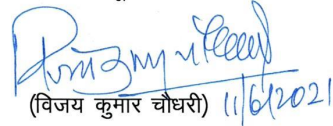 (विजय कुमार चौधरी) 11/6/2021